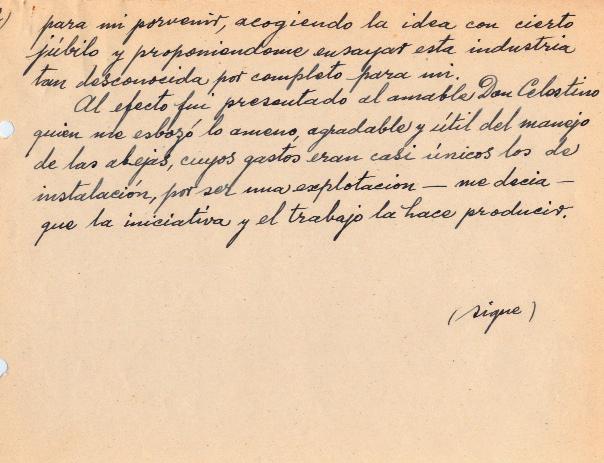 para mi porvenir, acogiendo la idea con cierto
júbilo y proponiendome ensayar esta industria
tan desconocida por completo para mi.
Al efecto fui presentado al amable Don Celostino
quien me esbozó lo ameno, agradable y útil del manejo
de las abejas, cuyos gastos eran casi únicos los de
instalación, por ser una explotacion — me decia —
que la iniciativa y el trabajo la hace producir.
(sigue)